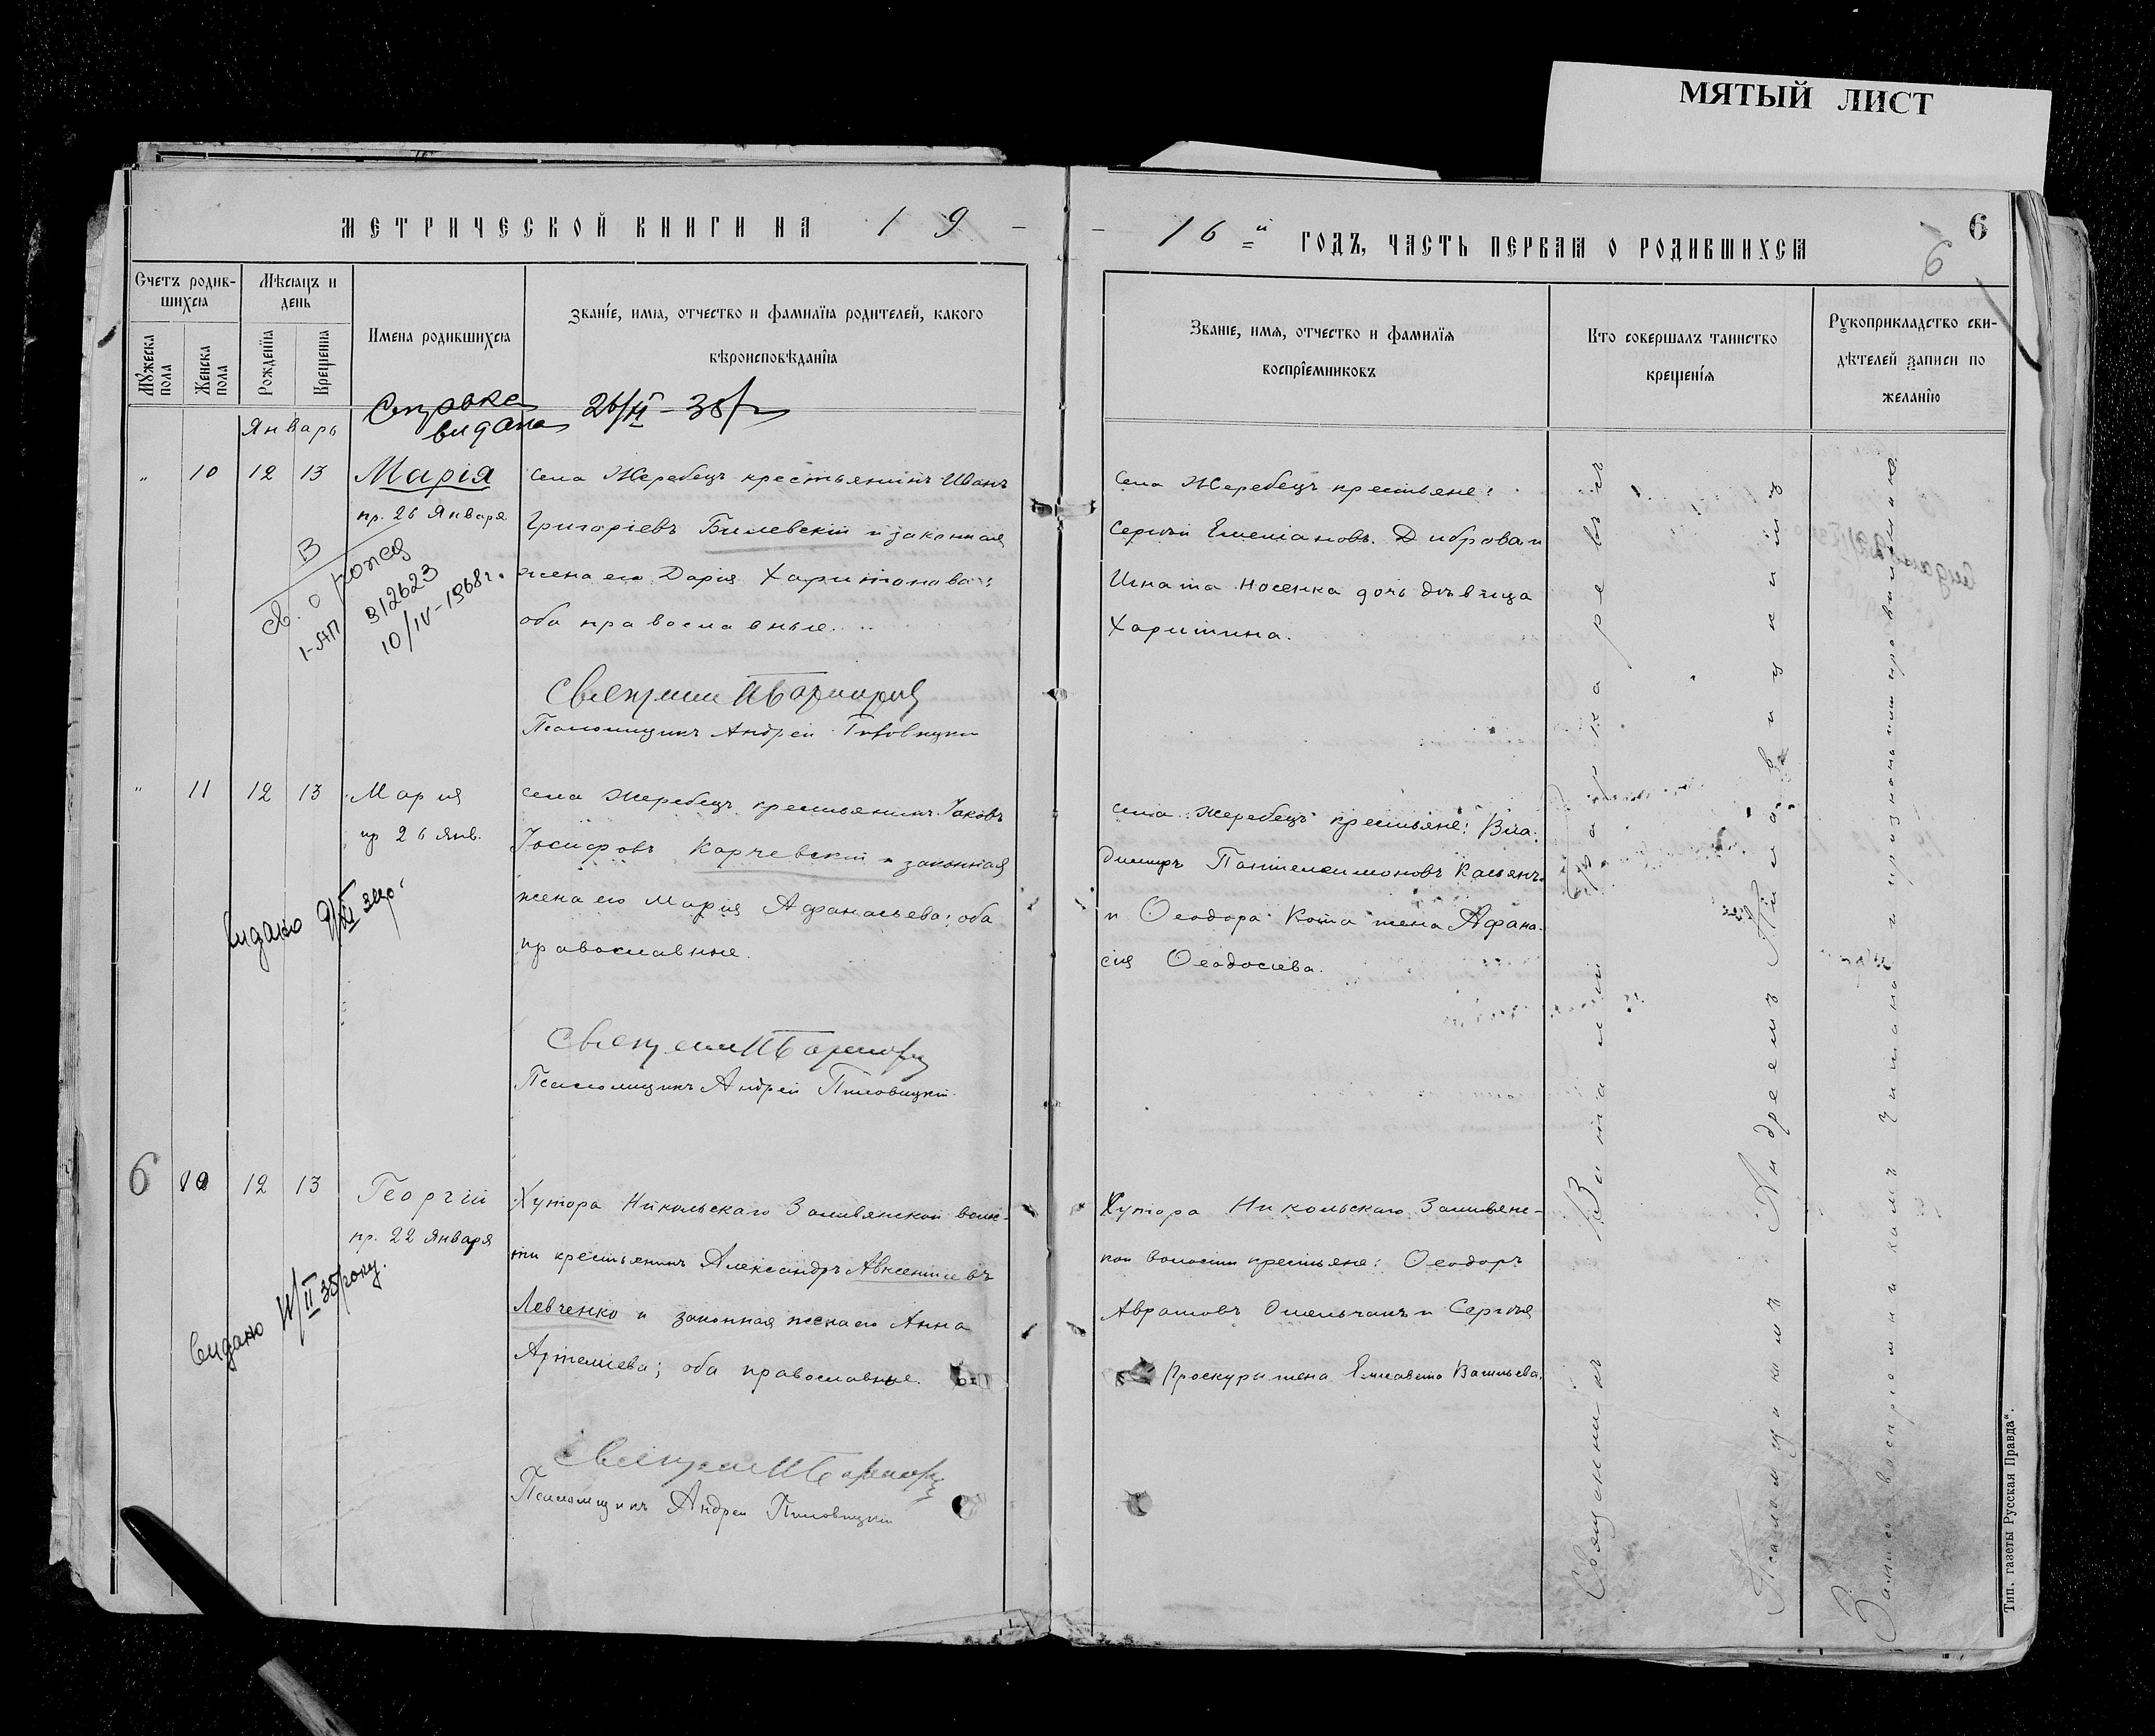 МЯТЫЙ ЛИСТ
МЕТРИЧЕСКОЙ КНИГИ НА 19
16й ГОДЪ, ЧАСТЬ ПЕРВАЯ О РОДИВШИХСЯ
6
6
Счетъ родив-
шихся
Мѣсяцъ и
день
Мужеска
пола
Женска
пола
Рожденїя
Крещенїя
Имена родившихся
Званїе, имя, отчество и фамилїя родителей, какого
вѣроисповѣданїя
Званїе, имя, отчество и фамилїя
воспрїемниковъ
Кто совершалъ таинство
крещенїя
Рукоприкладство сви-
дѣтелей записи по
желанїю
Январь
Справка
видана
„ 10 12 13 Марія
пр. 26 Января
св. о рожд
1-АП 312623
10/IV-1968 г.
села Жеребецъ крестьянинъ Иванъ
Григоріевъ Билевскій и законная
жена его Дарія Харитонова;
оба православные.
Псаломщикъ Андрей
села Жеребецъ крестьяне:
Сергій Емеліановъ Диброва и
Игната Носенка дочь дѣвица
Харитина.
„ 11 12 13 Марія
пр 26 Янв.
видано
села Жеребецъ крестьянинъ Іаковъ
Іосифовъ Карчевскій и законная
жена его Марія Афанасьева; оба
православные.
Псаломщикъ Андрей Пиловицкій
села Жеребецъ крестьяне: Вла-
димиръ Пантелеимоновъ Касьянъ
и Ѳеодора Кота жена Афана-
сія Ѳеодосіева.
6 12 13 Георгій
пр. 22 Января
видано
Хутора Никольскаго Заливянской волос-
ти крестьянинъ Александръ Авксентіевъ
Левченко и законная жена его Анна
Артеміева; оба православные.
Псаломщикъ Андрей Пиловицкій
Хутора Никольскаго Заливянс-
кой волости крестьяне: Ѳеодоръ
Аврамовъ Омельчакъ и Сергія
Проскуры жена Елисавета Васильева.
Священникъ Виталій
Псаломщикъ Андреемъ
Запись воспріемникамъ читана и
Тип. газеты Русская Правда“.